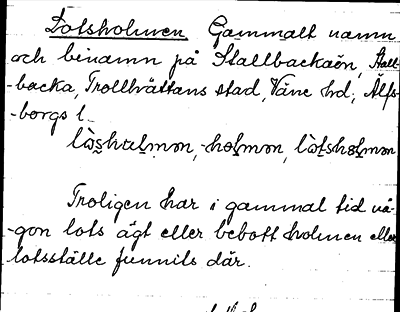 Lotsholmen Gammalt namn
och binamn på Stallbackaön, Stall-
-backa, Trollhättans stad, Väne hd, Älfs-
-borgs l.
lòs̱hɷḻmən, -hoḻmən, lòṯshoḻmən
Troligen har i gammal tid nå-
-gon lots ägt eller bebott holmen eller
lotsställe funnits där.